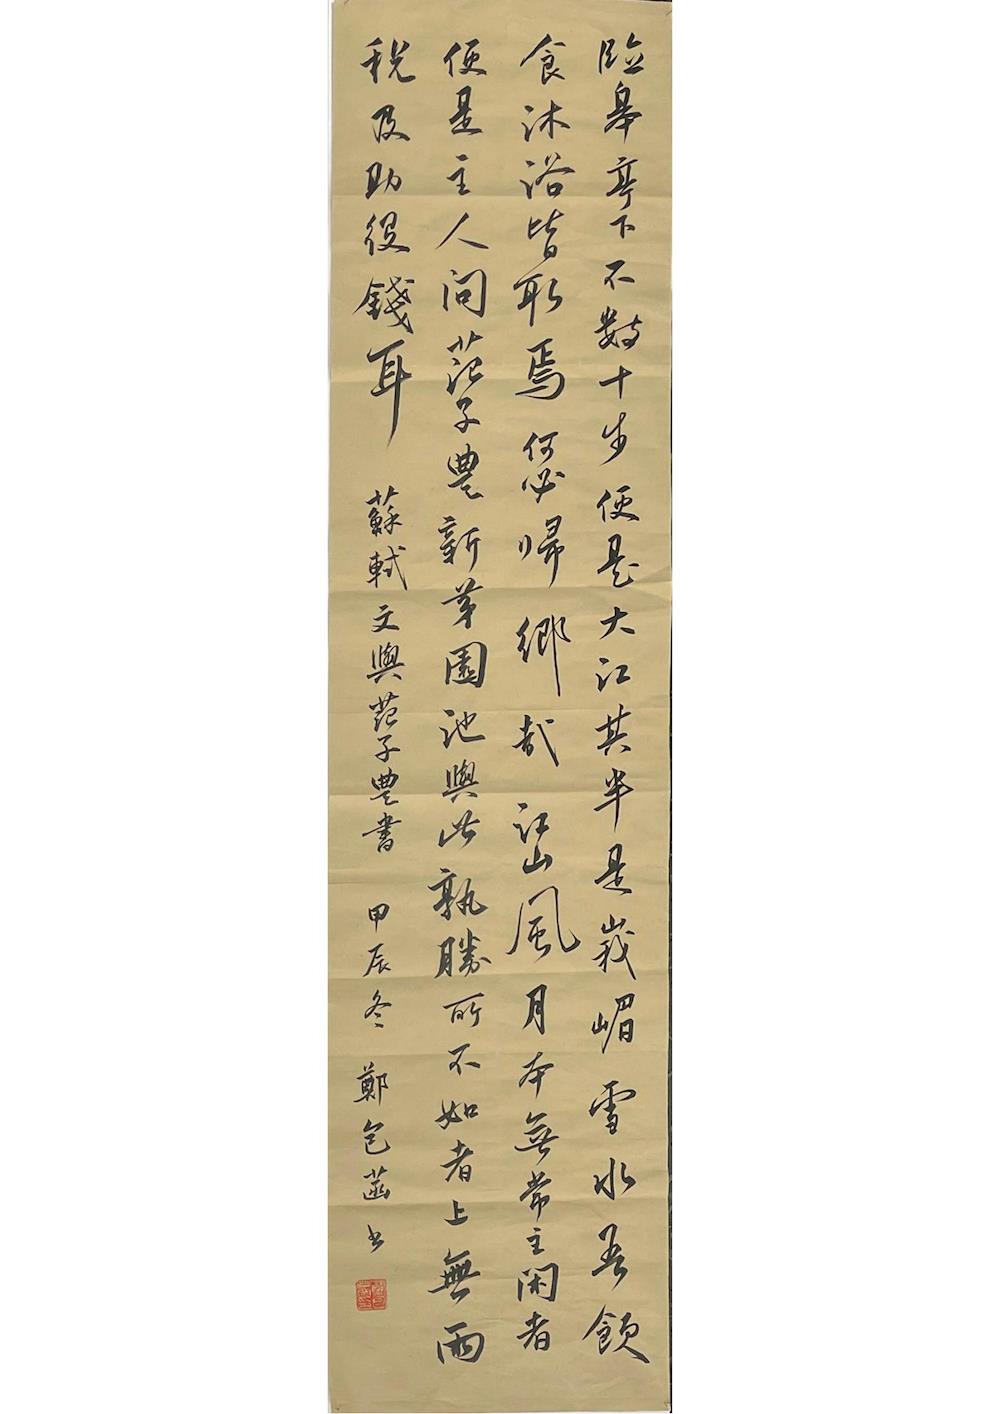 臨皋亭下不數十步便是大江其半是峩嵋雪水吾飲
食沐浴皆取焉何必歸鄉哉江山風月本無常主閑者
便是主人問范子豐新第園池與此孰勝所不如者上無兩
稅及助役錢耳 蘇軾文與范子豐書 甲辰冬 鄭包菡書